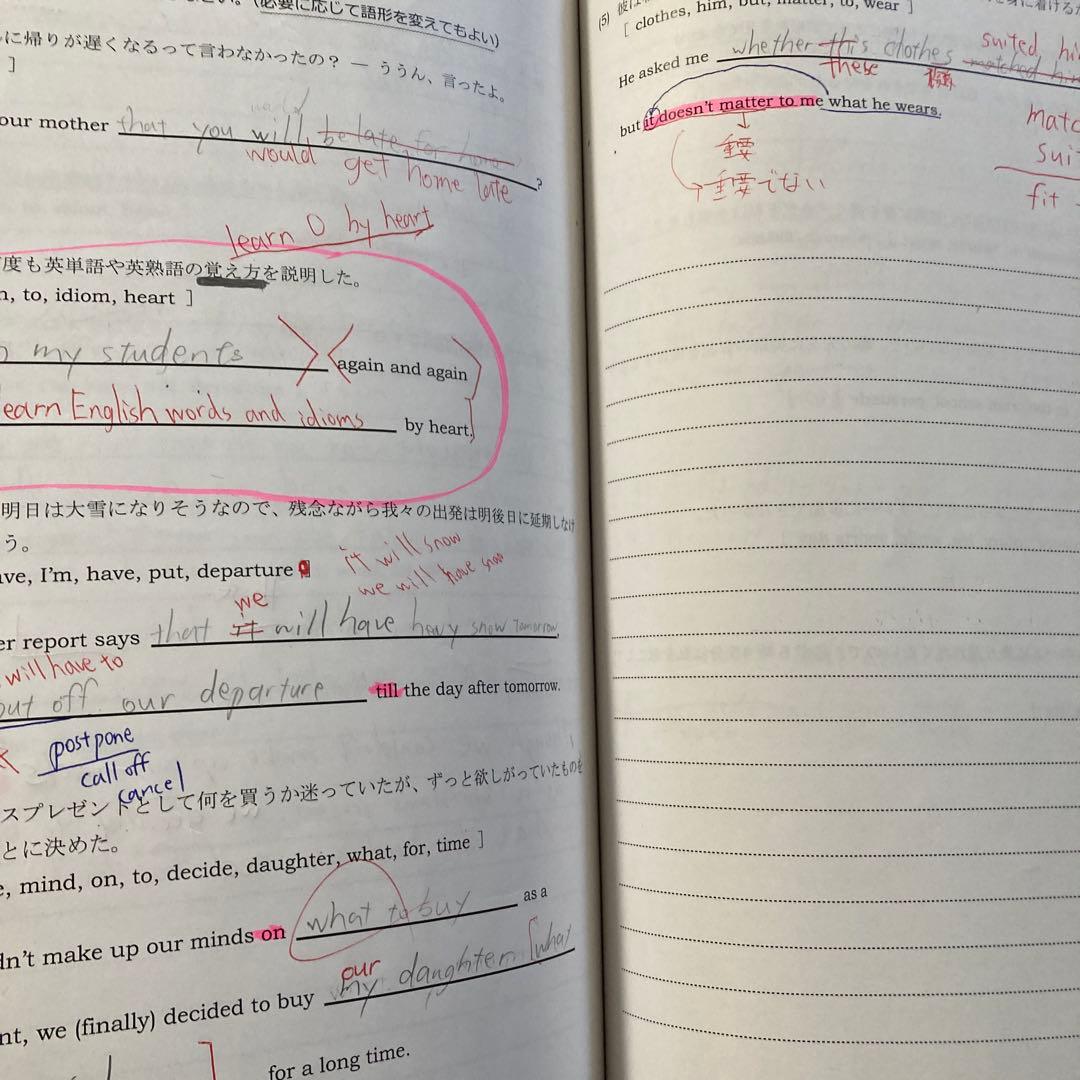 必要に応じて語形を変えてもよい)
に帰りが遅くなるって言わなかったの？ ― ううん、言ったよ。
]
our mother that you will be late for home ?
would get home late
learn O by heart
度も英単語や英熟語の覚え方を説明した。
n, to, idiom, heart ]
my students again and again
learn English words and idioms by heart.
明日は大雪になりそうなので、残念ながら我々の出発は明後日に延期しなけ
う。
ave, I'm, have, put, departure
it will snow
we will have snow
we
er report says that it will have hevy snow tomorrow,
will have to
put off our departure till the day after tomorrow.
postpone
call off
cancel
スプレゼントとして何を買うか迷っていたが、ずっと欲しがっていたものを
とに決めた。
e, mind, on, to, decide, daughter, what, for, time ]
dn't make up our minds on what to buy as a
our
nt, we (finally) decided to buy my daughter what
for a long time.
(5) 彼は
[ clothes, him, but, matter, to, wear ]
suited hi
He asked me whether this clothes matched him
these
but it doesn't matter to me what he wears.
重要
重要でない
matc
suit
fit